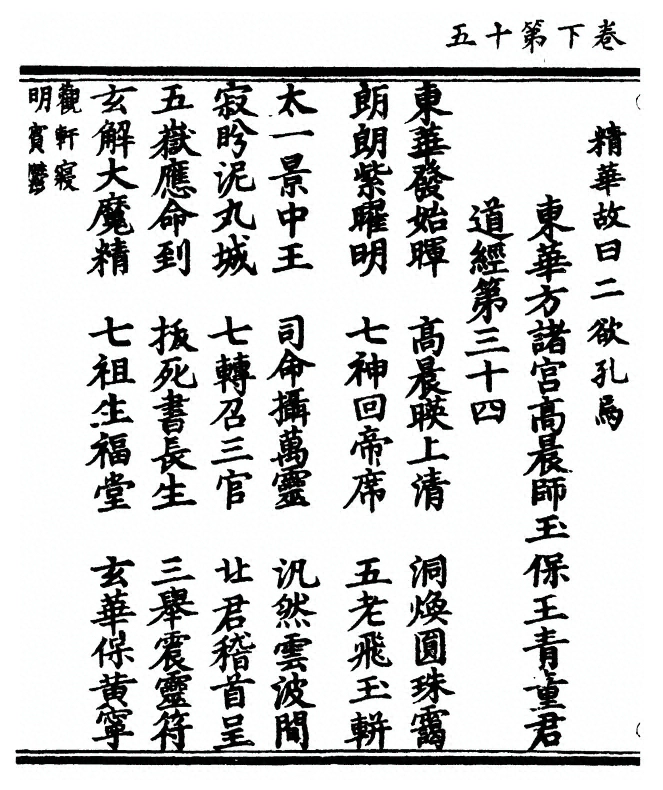 卷下第十五
精華故曰二欲孔爲
東華方諸宮高晨師玉保王青童君
道經第三十四
東華發始暉 高晨暎上清 洞煥圓珠靄
朗朗紫曜明 七神回帝席 五老飛玉軿
太一景中王 司命攝萬靈 汎然雲波間
寂眄泥丸城 七轉召三官 北君稽首呈
五嶽應命到 拔死書長生 三舉震靈符
玄解大魔精 七祖生福堂 玄華保黃寧
觀軒寢
明賓